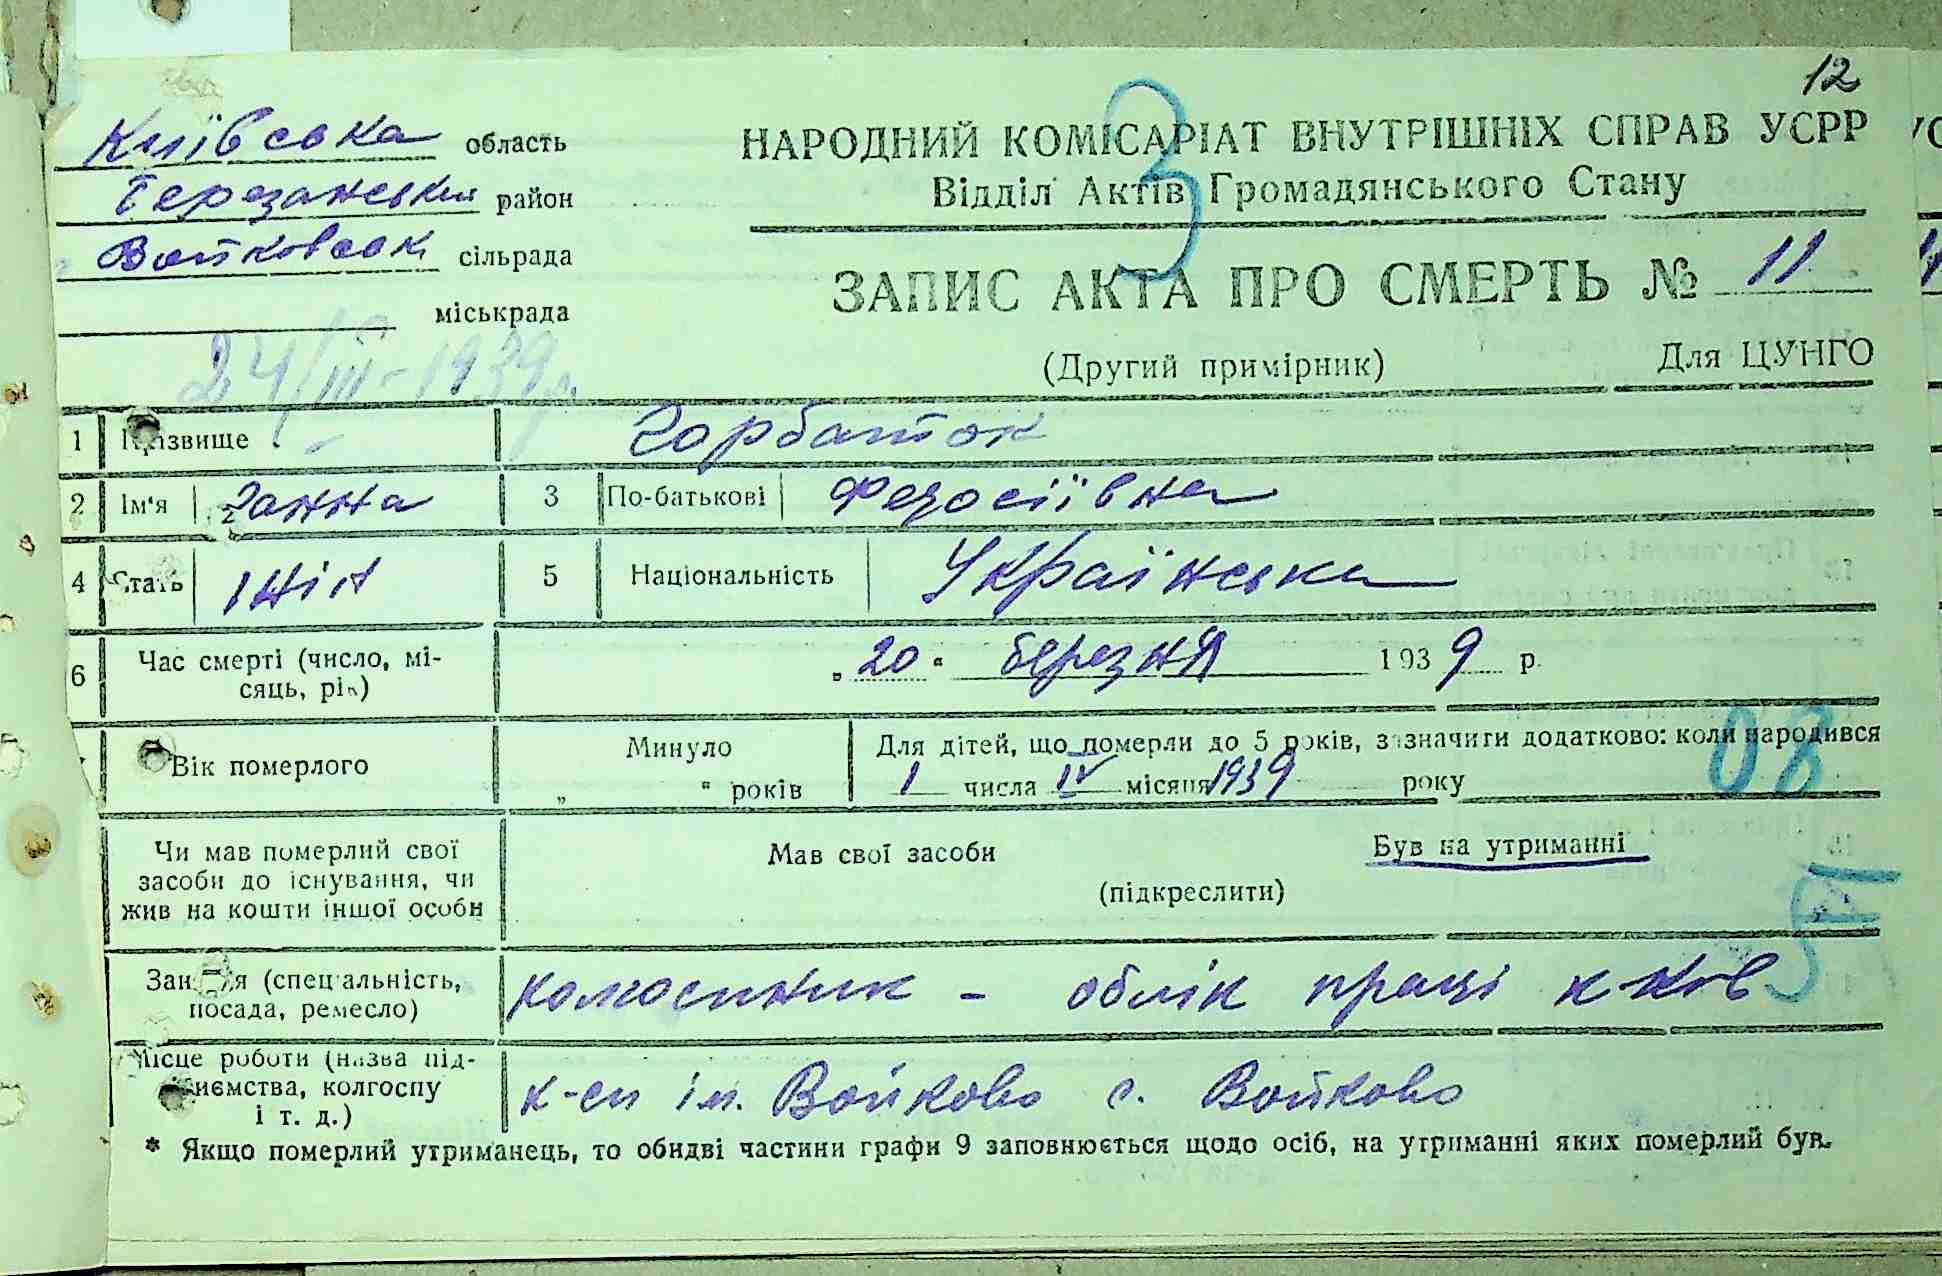 12
Київська область
НАРОДНИЙ КОМІСАРІАТ ВНУТРІШНІХ СПРАВ УСРР
Березанський район
Відділ Актів Громадянського Стану
3
Войковськ сільрада
ЗАПИС АКТА ПРО СМЕРТЬ № 11
міськрада
(Другий примірник) Для ЦУНГО
24/III-1939р.
1 Прізвище Горбаток
2 Ім'я Ганна 3 По-батькові Федосіївна
4 Стать жін 5 Національність Українська
6 Час смерті (число, мі-
сяць, рік) „ 20 " березня 1939 р.
Вік померлого
Минуло
„ " років
Для дітей, що померли до 5 років, зазначити додатково: коли народився
1 числа IV місяця 1939 року
08
Чи мав померлий свої
засоби до існування, чи
жив на кошти іншої особи
Мав свої засоби Був на утриманні
(підкреслити)
51
Заняття (спеціальність,
посада, ремесло)
колгоспник - облік праці к-ків
Місце роботи (назва під-
приємства, колгоспу
і т. д.)
к-сп ім. Войково с. Войково
* Якщо померлий утриманець, то обидві частини графи 9 заповнюється щодо осіб, на утриманні яких померлий був.